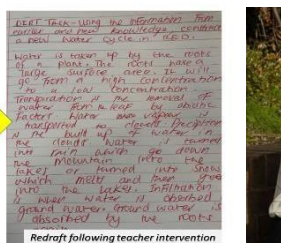 DIRT TASK - Using the information from
earlier and new knowledge, construct
a new water cycle in RED.
Water is taken up by the roots
of a plant. The roots have a
large surface area. It will
go from a high concentration
to a low concentration.
Transpiration is the removal of
water from the leaf
factors. Water vapour is
transported to clouds. Precipitation
is the build up of water in
the clouds. Water is turned
into rain which go down
the mountain into the
lakes or turned into snow
which melts and then goes
into the lakes. Infiltration
is when water is absorbed
ground water. Ground water is
absorbed by the roots
again.
Redraft following teacher intervention